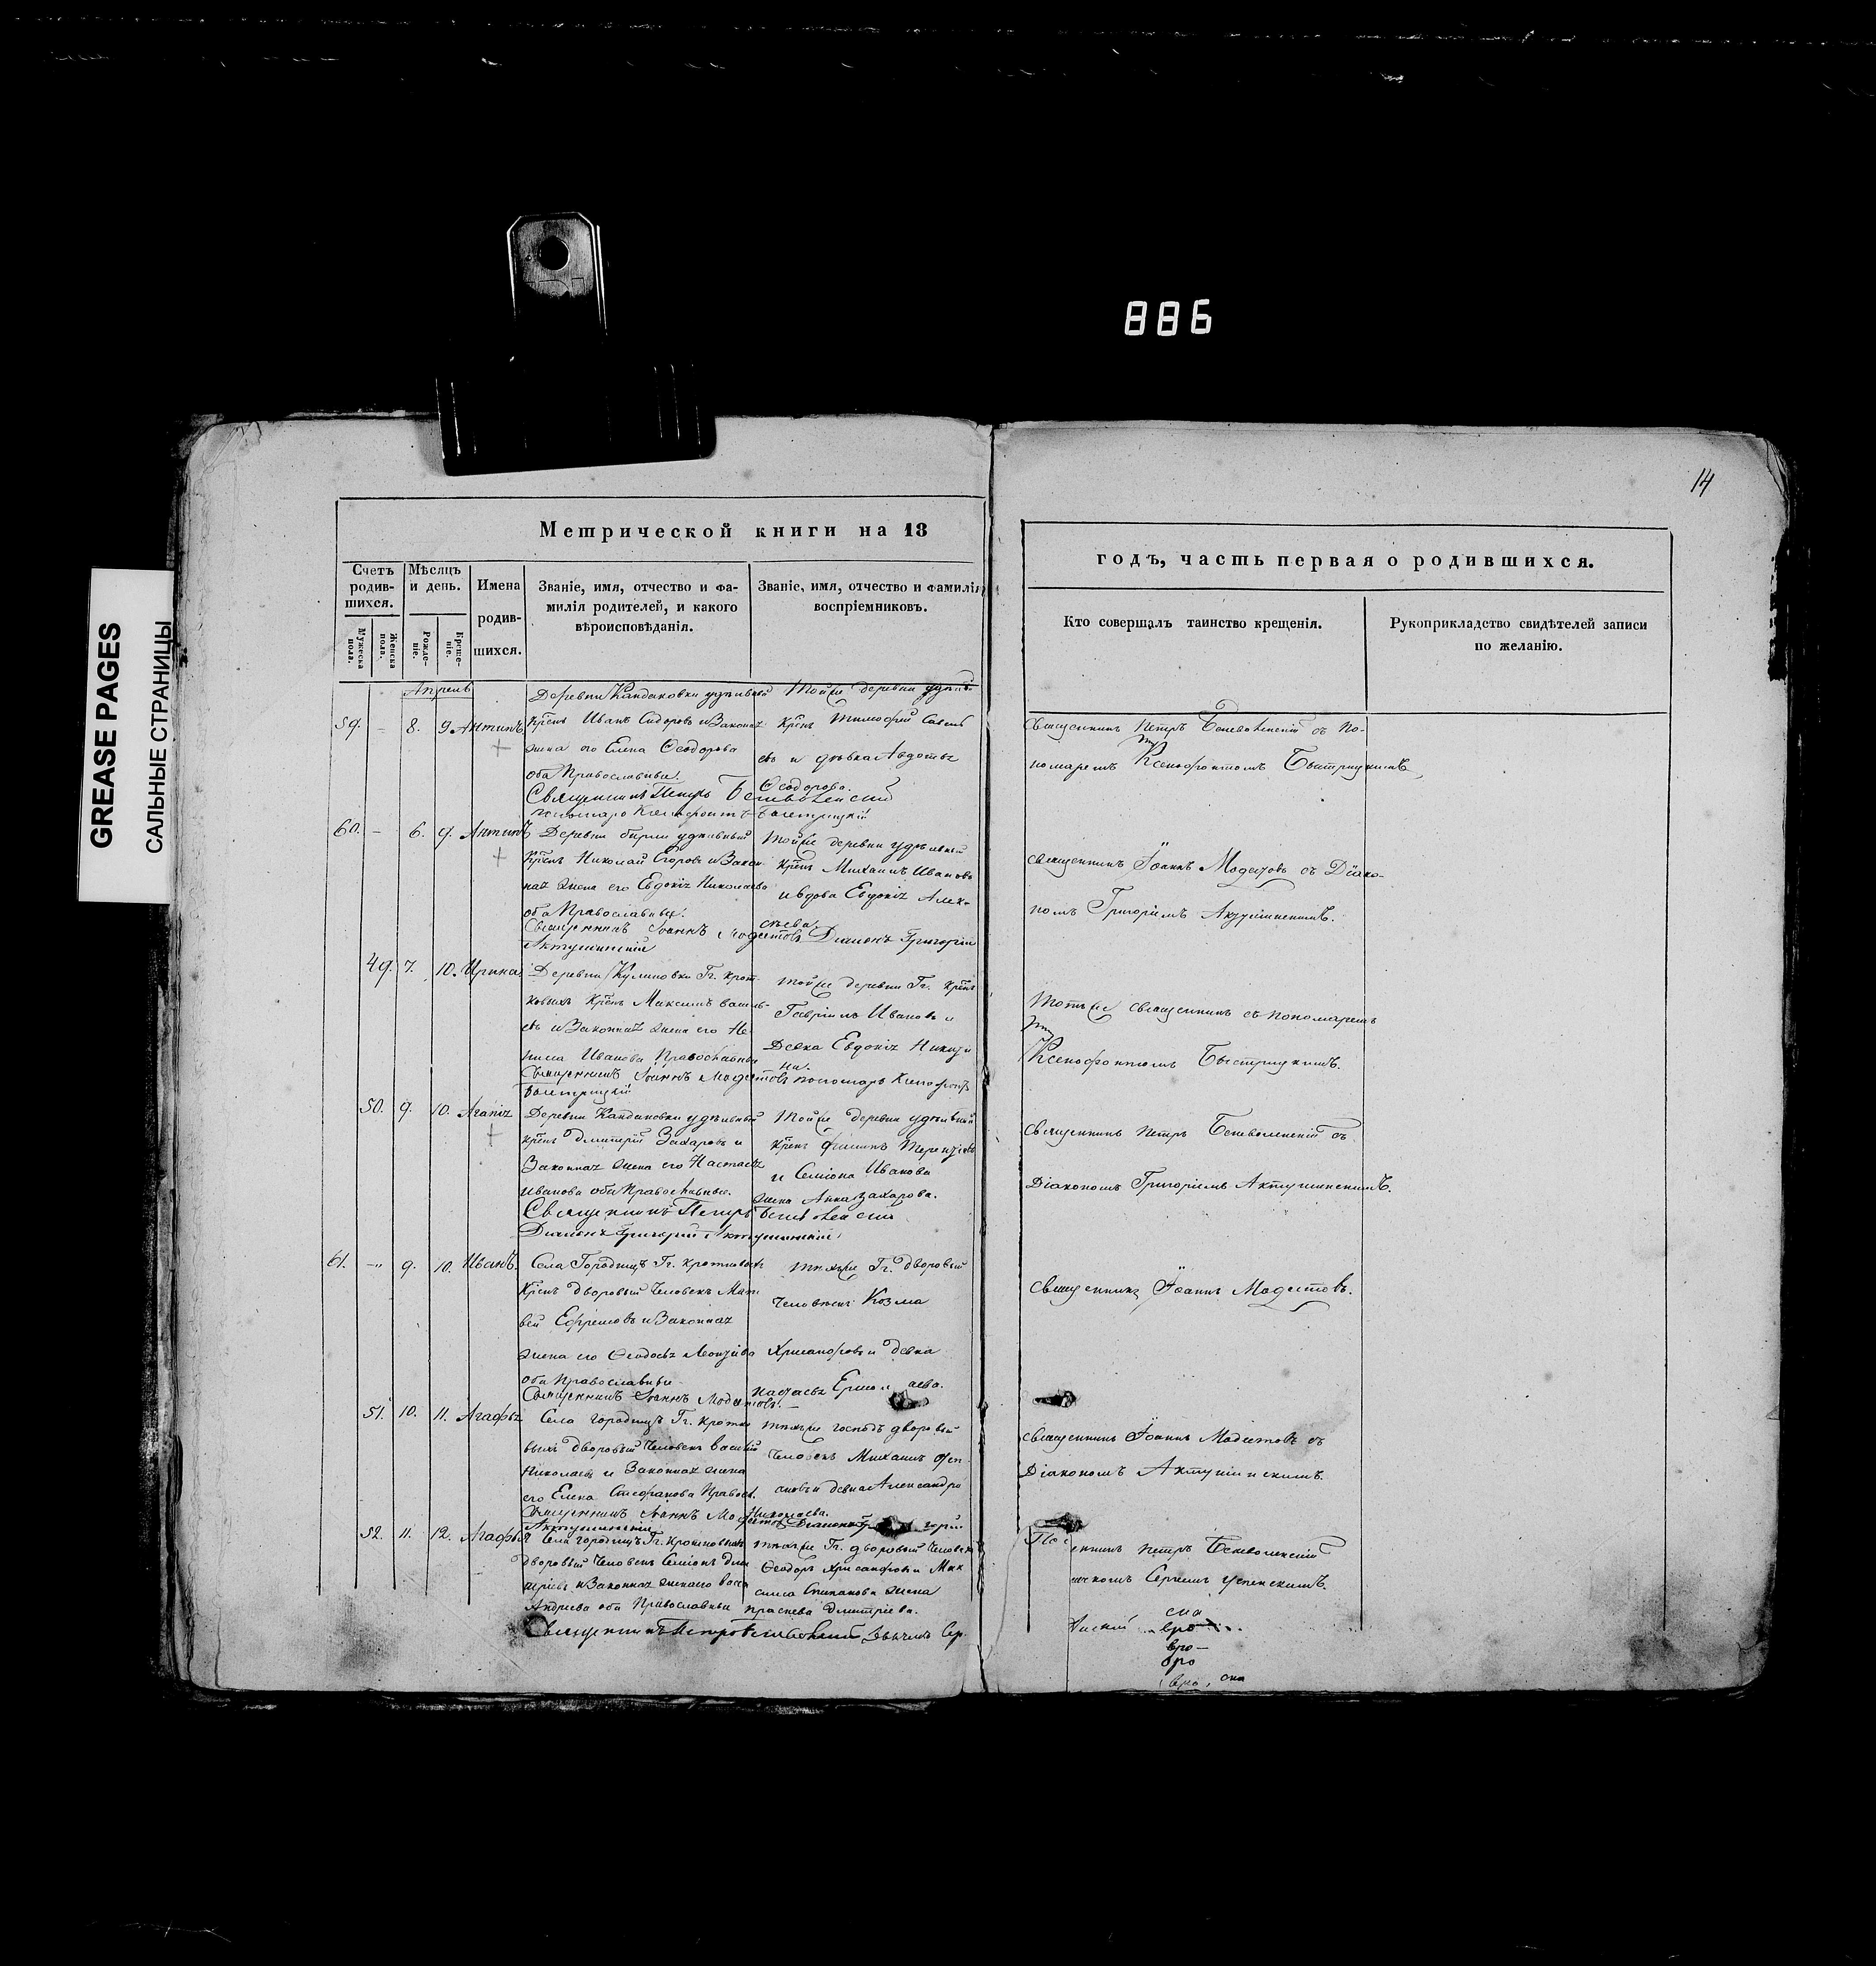 886
GREASE PAGES
САЛЬНЫЕ СТРАНИЦЫ
14
Метрической книги на 18
Счетъ родив-шихся.
Мѣсяцъ и день.
Имена родив-шихся.
Званіе, имя, отчество и фа-
милія родителей, и какого
вѣроисповѣданія.
Званіе, имя, отчество и фамилія
воспріемниковъ.
Мужеска пола.
Женска пола.
Рожде-ніе.
Креще-ніе.
годъ, часть первая о родившихся.
Кто совершалъ таинство крещенія.
Рукоприкладство свидѣтелей записи
по желанію.
Апрель
59. - 8. 9. Антипъ
Деревни Кандаковки удѣльный
Крѣнъ Иванъ Сидоровъ и Законная
жена его Елена Ѳеодорова
оба Православные.
Священникъ Петръ Беневоленский
пономарь Ксенофонтъ Быстрицкий
Той же деревни
Крѣнъ Тимофей
въ и дѣвка Авдотья
Ѳеодорова.
Священникъ Петръ Беневоленский съ По-
номаремъ Ксенофонтомъ Быстрицкимъ
60. - 6. 9. Антипъ
Деревни удѣльный
Крѣнъ Николай Егоровъ и Закон-
ная жена его Евдокія Николаева
оба Православные.
Священникъ Іоаннъ Модестовъ Діаконъ Григорій
Актушинский
Той же деревни удѣльный
Крѣнъ Михаилъ Ивановъ
и вдова Евдокія Алек-
сѣева.
священникъ Іоаннъ Модестовъ съ Діако-
номъ Григоріемъ Актушинскимъ.
49. 7. 10. Ирина
Деревни Куликовки Гг. Крот-
ковыхъ Крѣнъ Максимъ Василь-
евъ и Законная жена его
Иванова Православные
Священникъ Іоаннъ Модестовъ пономарь Ксенофонтъ
Быстрицкий
Той же деревни Гг. Крѣнъ
Гавріилъ Ивановъ и
Девка Евдокія Никити
на.
Тотъ же священникъ съ пономаремъ
Ксенофонтомъ Быстрицкимъ.
50. 9. 10. Агапія
Деревни Кандаковки удѣльный
крѣнъ Дмитрій Захаровъ и
Законная жена его Настасья
Иванова оба Православные.
Священникъ Петръ Беневоленский
Діаконъ Григорий Актушинский
Той же деревни удѣльный
Крѣнъ Филипъ Терентьевъ
и Семіона Иванова
жена Анна Захарова.
Священникъ Петръ Беневоленский съ
Діакономъ Григоріемъ Актушинскимъ.
61. - 9. 10. Иванъ.
Села Городищъ Гг. Кротковыхъ
Крѣнъ дворовый Человекъ Мат-
вей Ефремовъ и Законная
жена его Ѳеодосья Леонтіева
оба Православные
Священникъ Іоаннъ Модестовъ.
тѣхъ же Гг. дворовый
Человекъ Козма
Хрисанфовъ и Девка
Настасья
Священникъ Іоаннъ Модестовъ.
51. 10. 11. Агафья
Села Городищъ Гг. Кротко
выхъ дворовый Человекъ Василій
Николаевъ и Законная жена
его Елена Стефанова Правосл.
Священникъ Іоаннъ Модестовъ Діаконъ
Актушинский
тѣхъ же господъ дворовый
Человекъ Михаилъ
девка Александра
Николаева.
священникъ Іоаннъ Модестовъ съ
Діакономъ Актушинскимъ.
52. 11. 12. Агафья
Села Городищъ Гг. Кротковыхъ
дворовый Человекъ Семіонъ Дми
тріевъ и Законная жена его
Андреева оба Православные
Священникъ Петръ Беневоленский
тѣхъ же Гг. дворовый Человекъ
Ѳеодоръ Хрисанфовъ и Мак
сима Степанова жена
Прасковья Дмитріева.
енникъ Петръ Беневоленский
Сергіемъ Успенскимъ.